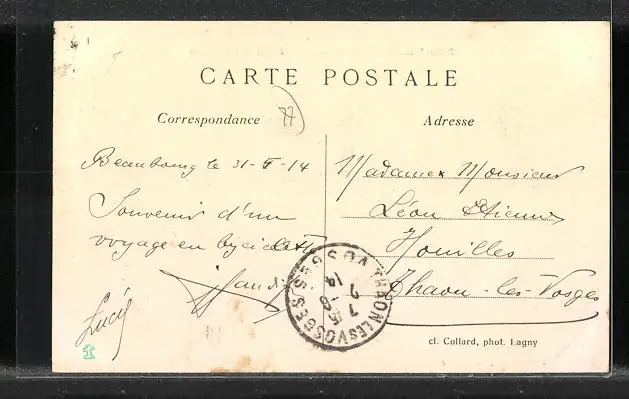 CARTE POSTALE
77
Correspondance
Adresse
Beaubourg le 31-5-14
Souvenir d'un
voyage en byciclette
Lucie
Madame & Monsieur
Léon Etienne
Houilles
Thaon-les-Vosges
THAON LES VOSGES VOSGES
7 15
2-6
14
cl. Collard, phot. Lagny